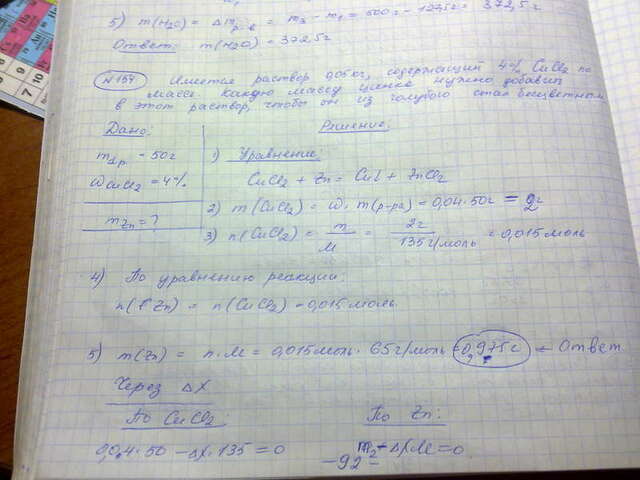 5) m(H2O) = Δm р-в = m3 - m1 = 500г - 127,5г = 372,5г
Ответ: m(H2O) = 372,5г
№154 Имеется раствор 0,05кг, содержащий 4% CuCl2 по
массе. Какую массу цинка нужно добавить
в этот раствор, чтобы он из голубого стал бесцветным
Дано:
Решение:
m1р = 50г
ωCuCl2 = 4%
mZn = ?
1) Уравнение:
CuCl2 + Zn = Cu↓ + ZnCl2
2) m(CuCl2) = ω · m(р-ра) = 0,04·50г = 2г
3) n(CuCl2) = m/M = 2г/135г/моль = 0,015моль
4) По уравнению реакции:
n(Zn) = n(CuCl2) = 0,015моль
5) m(Zn) = n·M = 0,015моль · 65г/моль = 0,975г ← Ответ
Через ΔX
По CuCl2:
По Zn:
0,04·50 - ΔX·135 = 0
m2 - ΔX·M = 0
-92-
7
10